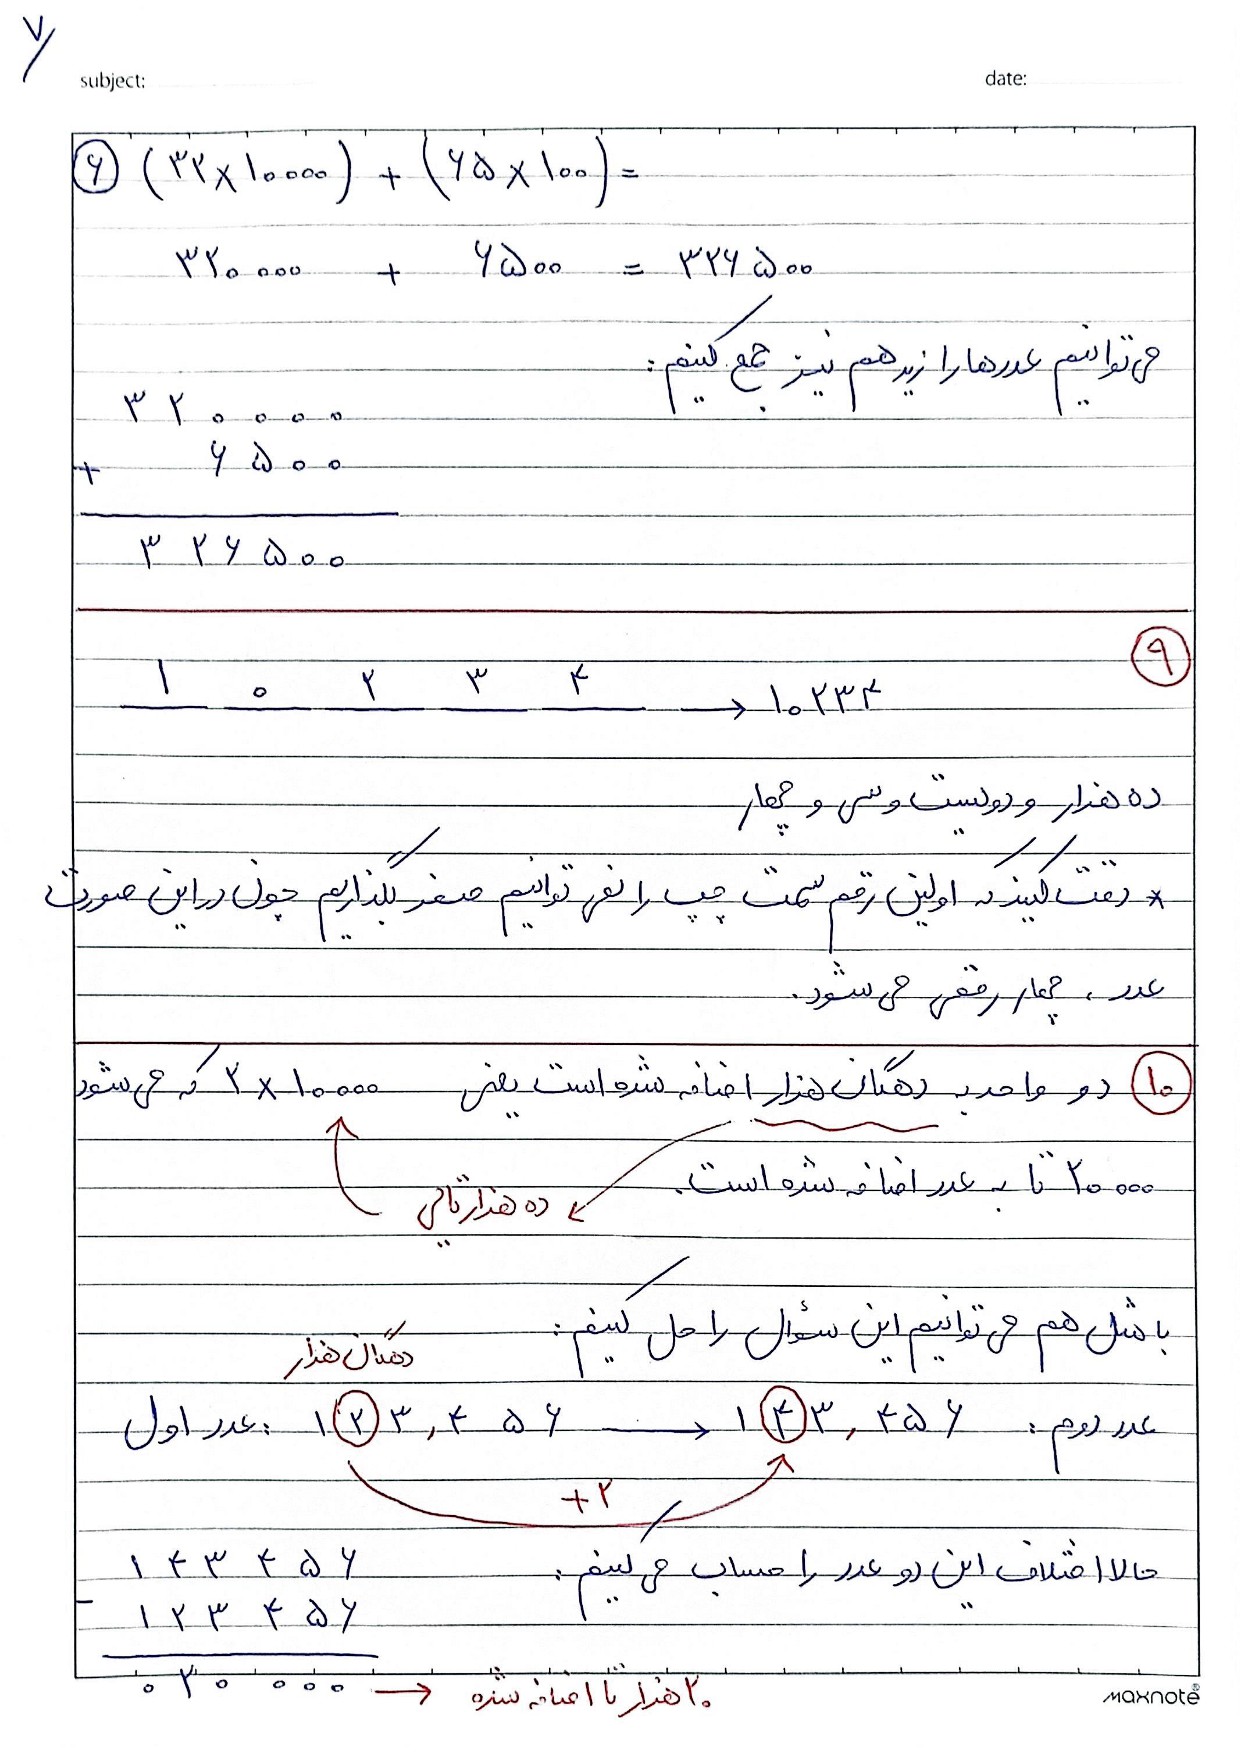 ۷
subject:
date:
۶ (۳۲×۱۰۰۰۰) + (۶۵×۱۰۰) =
۳۲۰۰۰۰ + ۶۵۰۰ = ۳۲۶۵۰۰
می توانیم عددها را زیر هم نیز جمع کنیم:
۳۲۰۰۰۰
+ ۶۵۰۰
۳۲۶۵۰۰
۹
۱ ۰ ۲ ۳ ۴ → ۱۰۲۳۴
ده هزار و دویست و سی و چهار
* دقت کنید که اولین رقم سمت چپ را نمی توانیم صفر بگذاریم چون در این صورت
عدد، چهار رقمی می شود.
۱۰ دو واحد به دهگان هزار اضافه شده است یعنی ۲×۱۰۰۰۰ که می شود
۲۰۰۰۰ تا به عدد اضافه شده است.
ده هزارتایی
با مثال هم می توانیم این سؤال را حل کنیم:
دهگان هزار
عدد اول: ۱۲۳,۴۵۶ → ۱۴۳,۴۵۶ عدد دوم:
+۲
حالا اختلاف این دو عدد را حساب می کنیم:
۱۴۳۴۵۶
- ۱۲۳۴۵۶
۰۲۰۰۰۰ → ۲۰ هزار تا اضافه شده
MAXNOTE